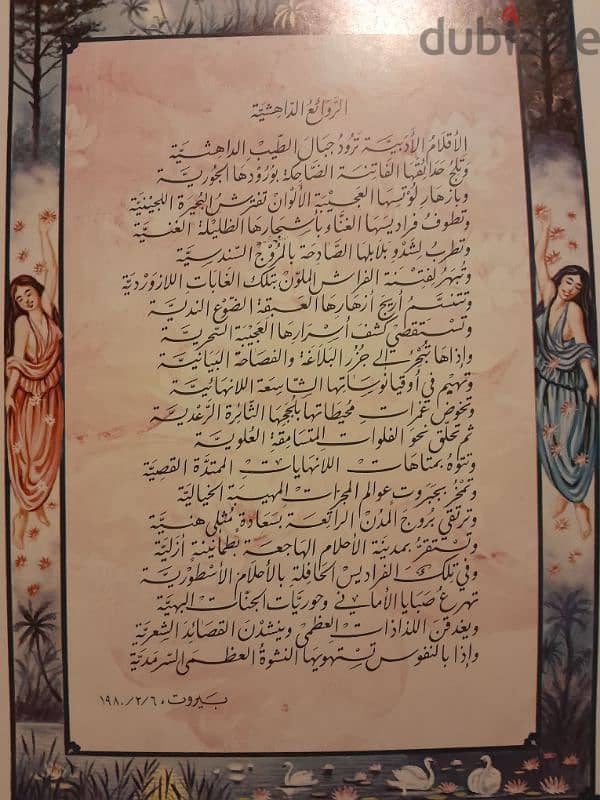 dubizzle
الرَّوَائعُ الدّاهشِيَّة
الأقلامُ الأدَبيَّة تَرُودُ جبَالَ الطّيبِ الداهشيَّة
وتلجُ حَدائقهَا الفَاتنَة الضَّاحِكَة بوُرُودِهَا الجُوريَّة
وبأزهَارِ لُوتسِهَا العَجيبَة الألوَان تفترشُ البُحَيرة اللجينيَّة
وتطوفُ فراديسَهَا الغنَّاء بأشجَارهَا الظليلة الغضيَّة
وتطربُ لشَدْو بَلابلهَا الصَّادحَة بالمُرُوج السّندسيَّة
وتُبهَرُ لفتنَة الفراشِ الملوَّن بتلكَ الغَابات اللازوَرديَّة
وتتنسَّم أريجَ أزهَارهَا العَبقة الضّوع النديَّة
وتستقصي كشفَ أسرَارهَا العَجيبَة السّحريَّة
وإذاهَا تبحرُ إلى جزُر البَلاغَة والفصَاحَة البيَانيَّة
وتهيمُ في أوقيَانوسَاتهَا الشّاسعَة اللانهَائيَّة
وتخوضُ غمَراتِ محيطاتهَا بلجَجهَا الثائرة الرّعديَّة
ثم تحلق نحوَ الفلوات المتسَامقة العُلويَّة
وتتوهُ بمتَاهَات اللانهَايَات الممتدَّة القصِيَّة
وتمخرُ بجبَروت عوالم المجرَّات المهيبَة الخياليَّة
وترتقي بُروجَ المدُن الرائعَة بسَعادة مُثلى هنيَّة
وتستقرُّ بمدينة الأحلام الهَاجعَة بطمَأنينة أزليَّة
وفي تلكَ الفرَاديس الحَافلة بالأحلام الأسْطوريَّة
تهرعُ صَبايا الأماني وحوريَّات الجنات البهيَّة
ويغدقنَ اللذاذات العظمى وينشدْنَ القصَائدَ الشعريَّة
وإذا بالنفوس تستهويهَا النشوة العظمَى السّرمَديَّة
بيروت، ١٩٨٠/٢/٦